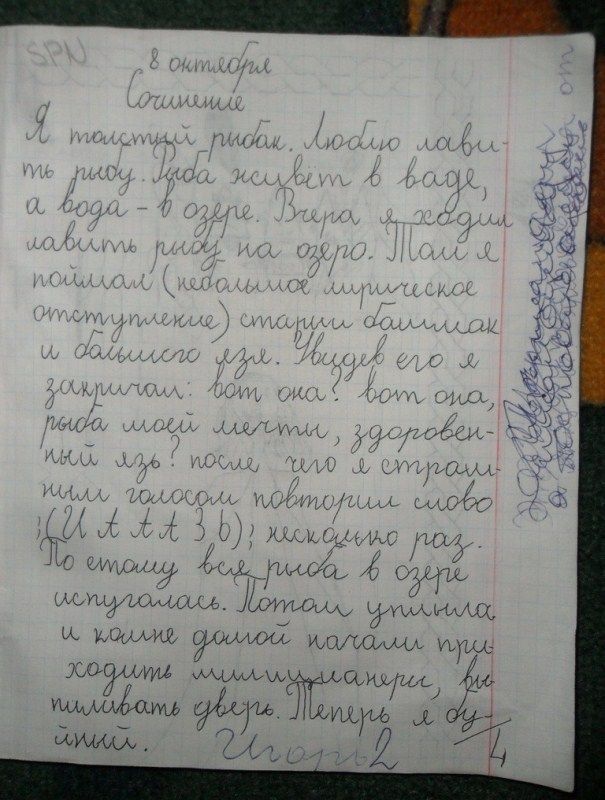 SPN
8 октября
Сочинение
Я толстый рыбак. Люблю лави-
ть рыбу. Рыба живёт в ваде,
а вода - в озере. Вчера я ходил
лавить рыбу на озеро. Там я
поймал (небольшое лирическое
отступление) старии башмак
и большого язя. Увидев его я
закричал: вот она? вот она,
рыба моей мечты, здоровен-
ный язь? после чего я страш-
ным голосом повторил слово
;(И А А А З Ь); несколько раз.
По етому вся рыба в озере
испугалась. Потом уплыла
и комне домой начали при-
ходить милицианеры, вы-
пиливать дверь. Теперь я бу-
йный.
Игорь 2/4
от